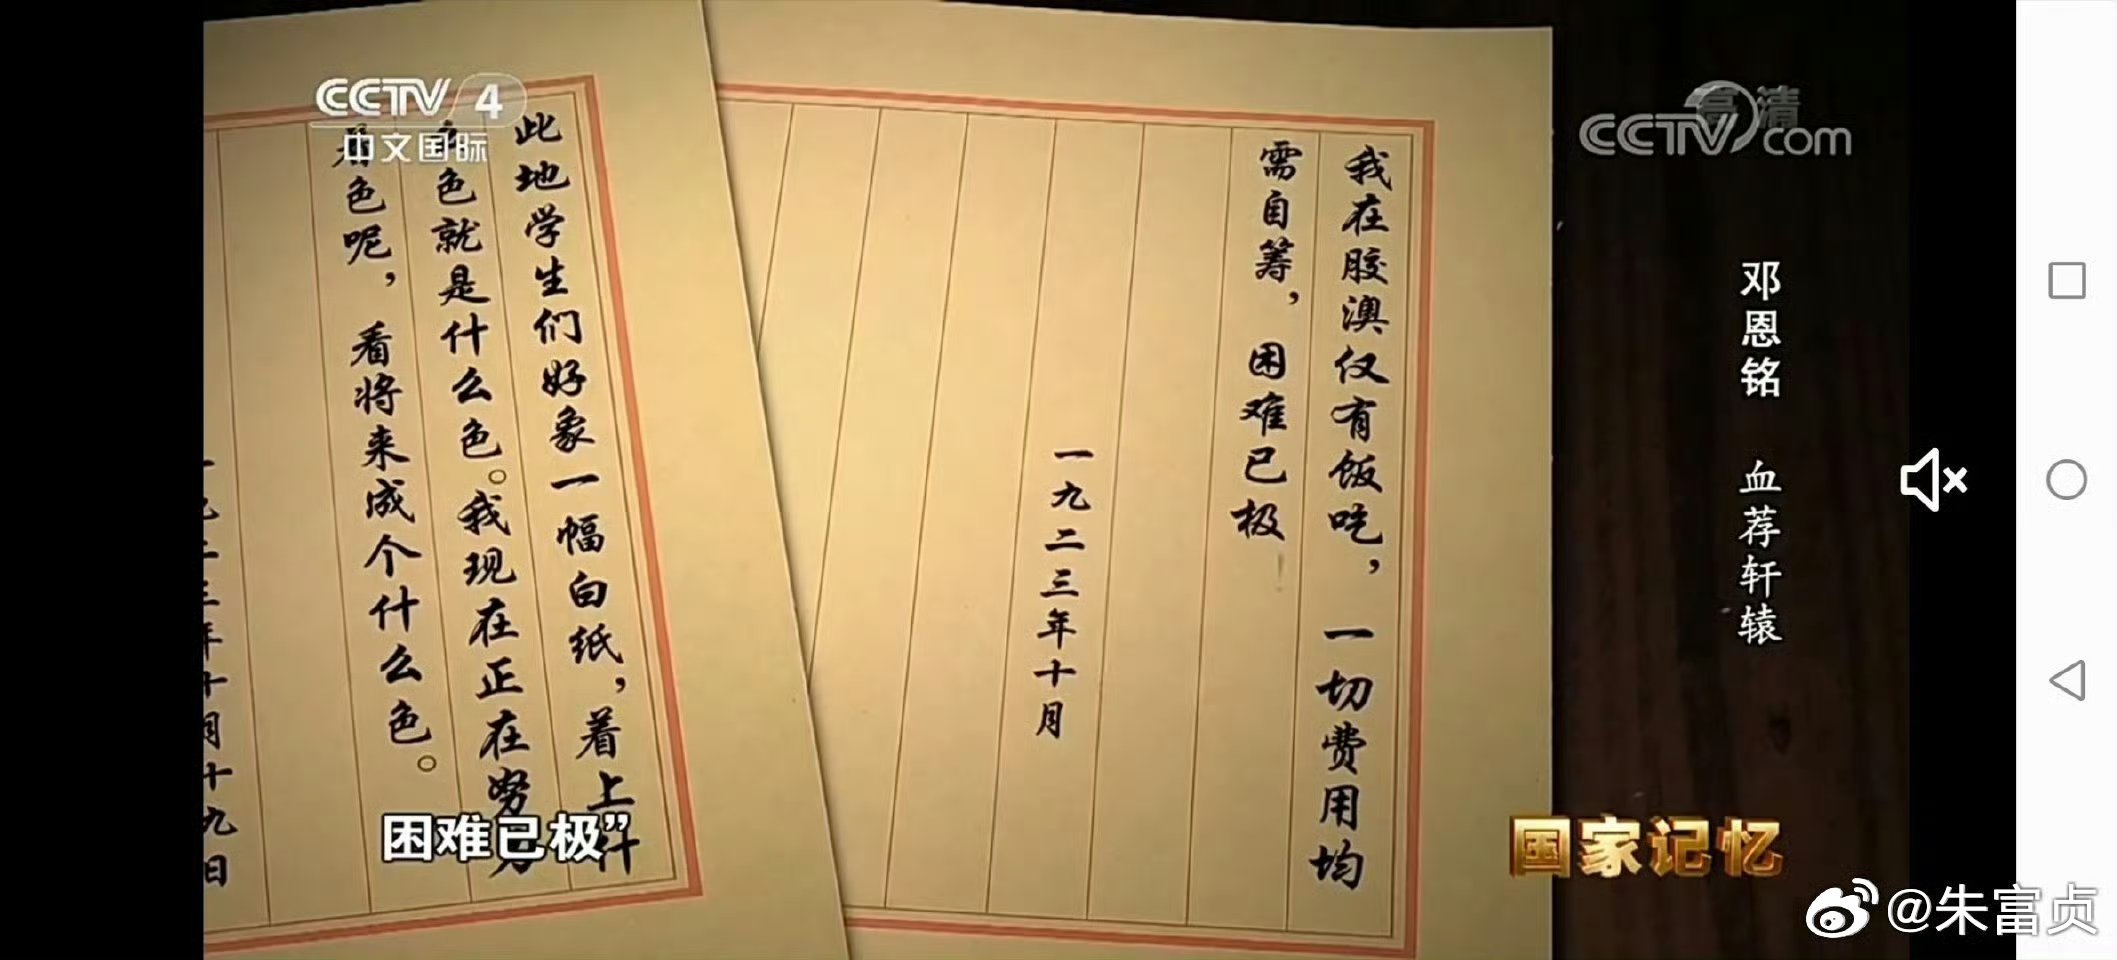 CCTV 4
中文国际
高清
CCTV.com
我在胶澳仅有饭吃，一切费用均
需自筹，困难已极
一九二三年十月
此地学生们好象一幅白纸，着上什
色就是什么色。我现在正在努力
着色呢，看将来成个什么色。
二三年十月十九日
邓恩铭 血荐轩辕
困难已极”
国家记忆
@朱富贞